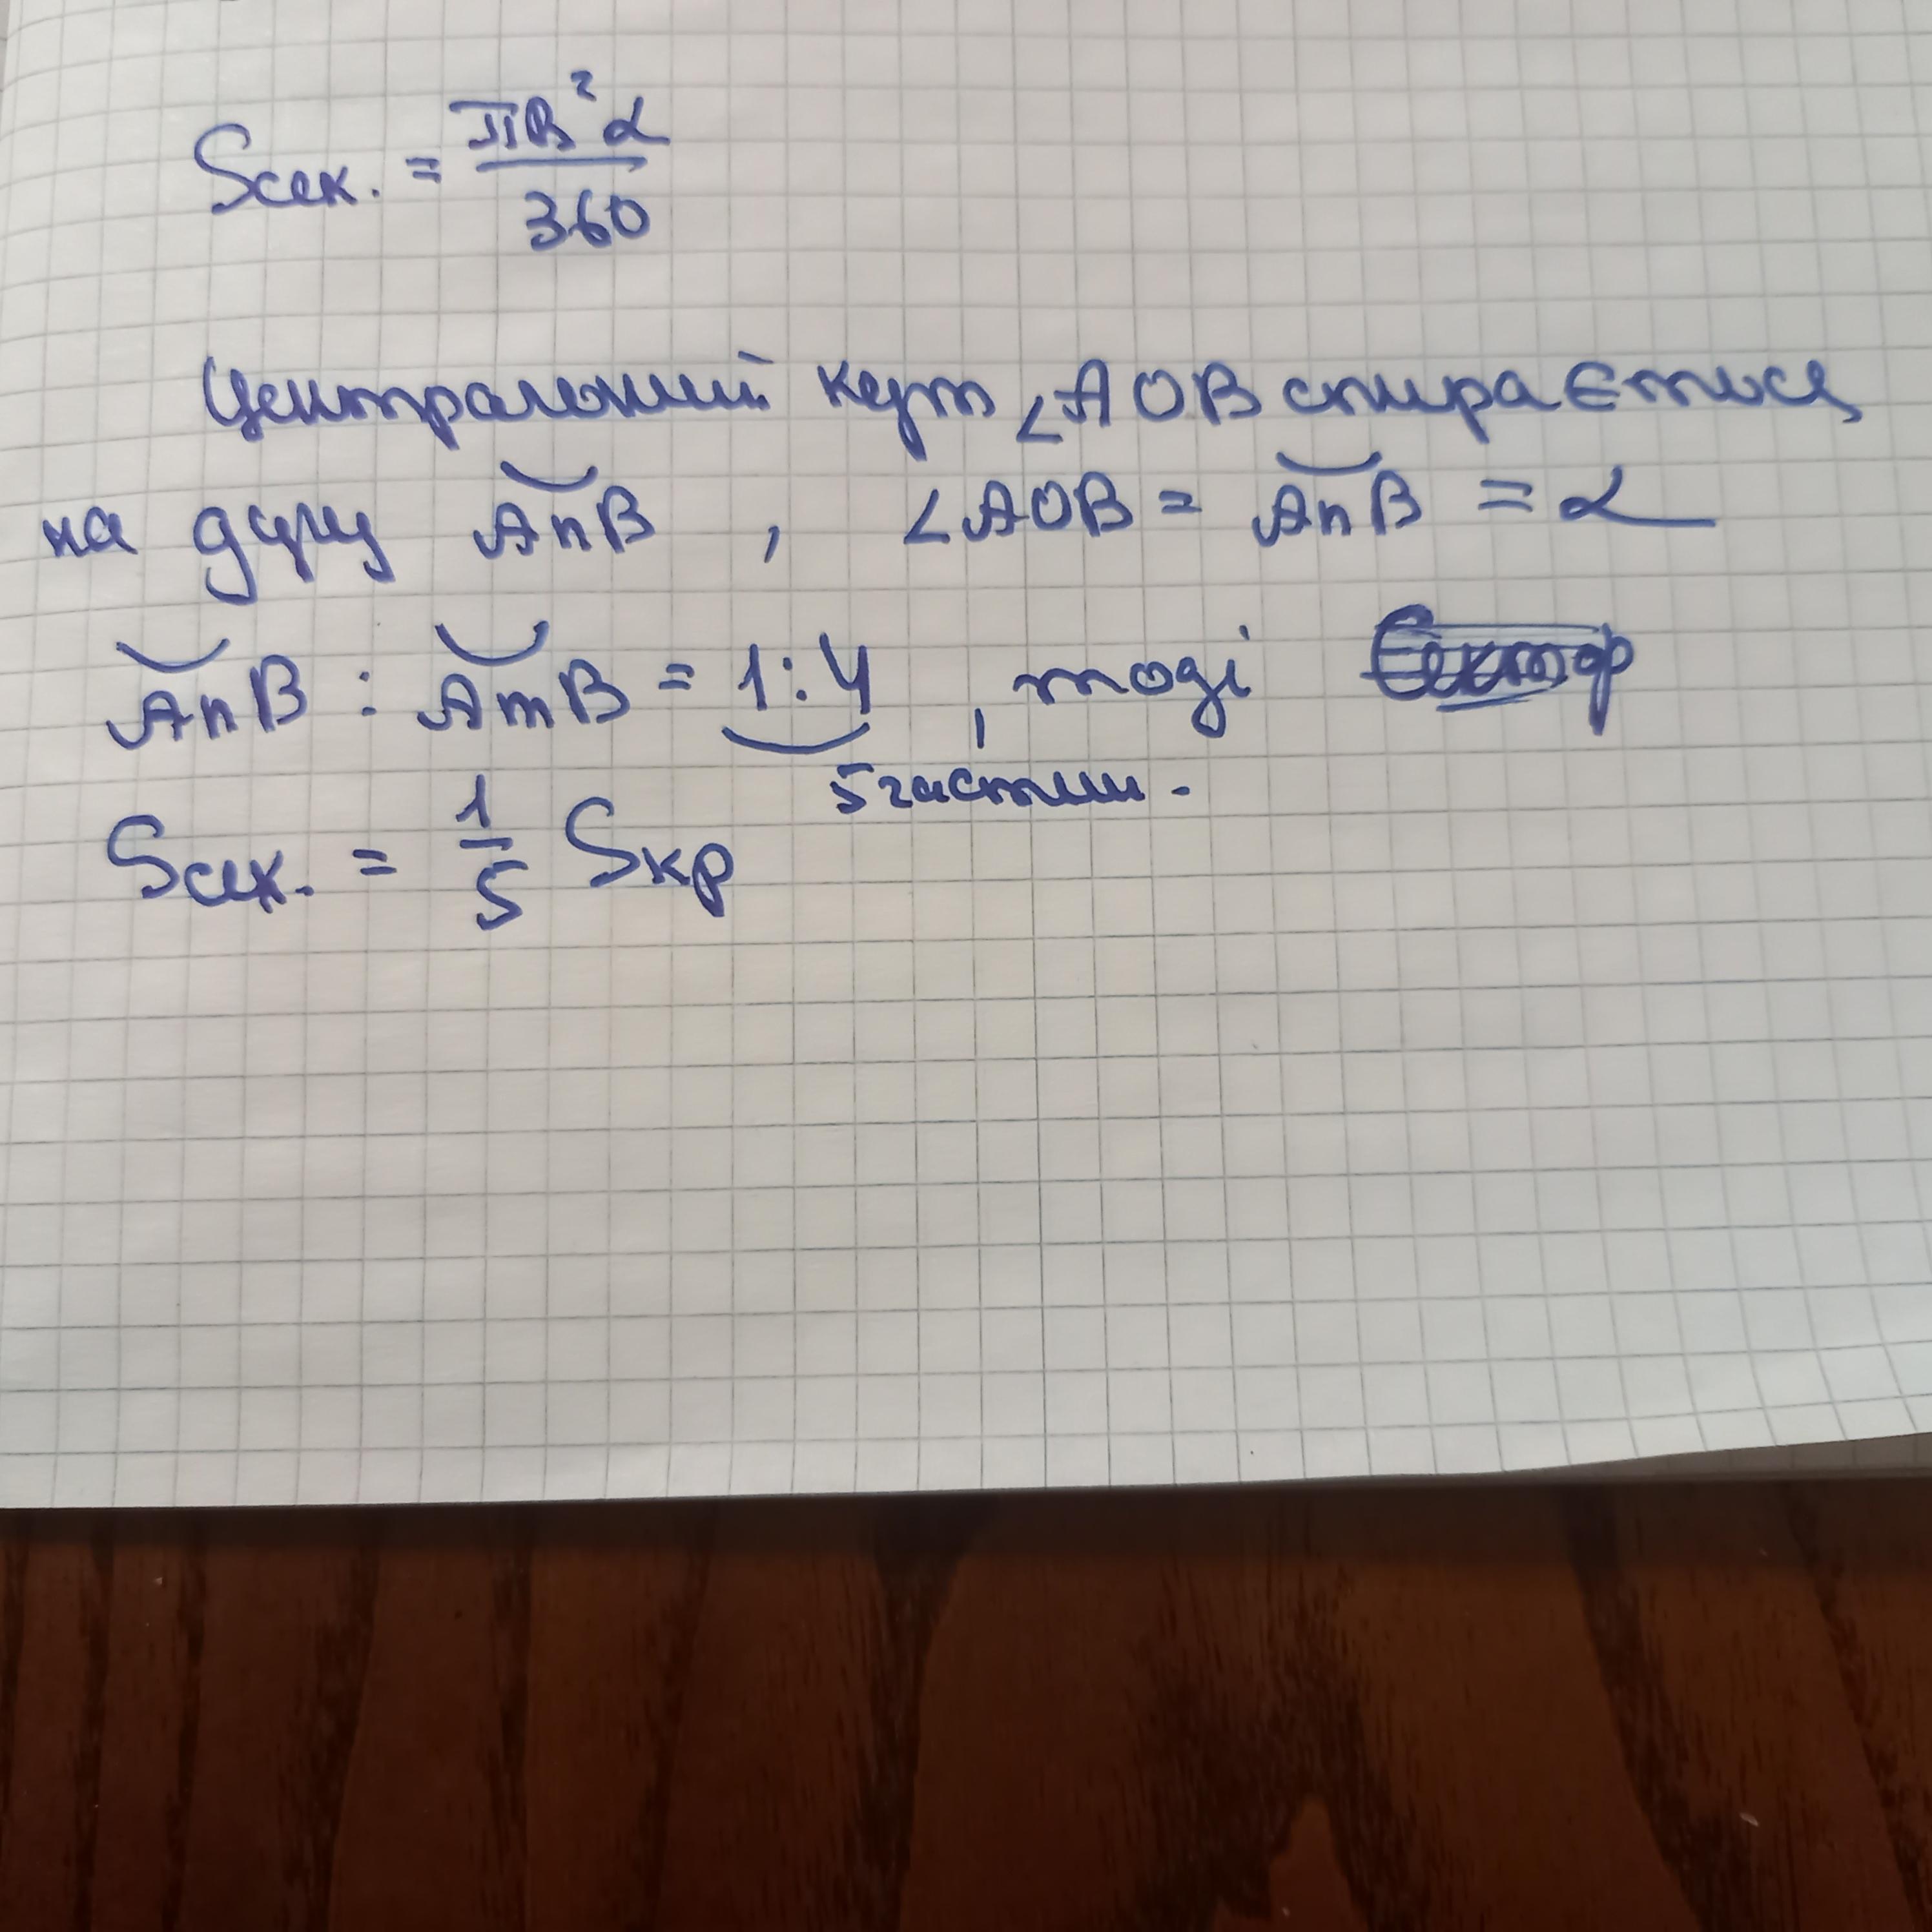 Sсек. = πR²α / 360
Центральний кут ∠AOB спирається
на дугу AnB , ∠AOB = AnB = α
AnB : AmB = 1:4 , тоді
5 частин.
Sсек. = 1/5 Sкр